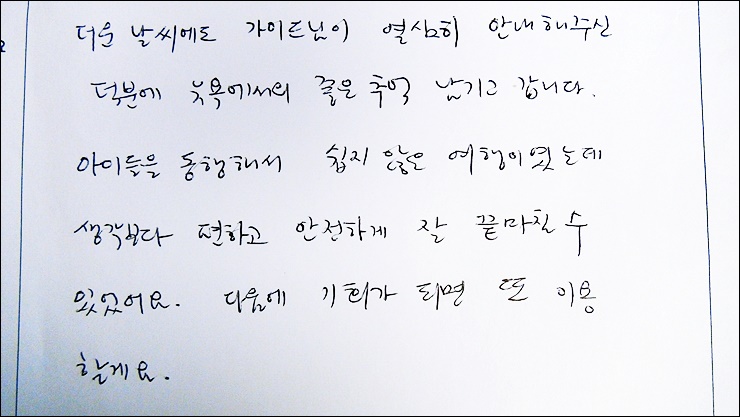 더운 날씨에도 가이드님이 열심히 안내해주신
덕분에 뉴욕에서의 좋은 추억 남기고 갑니다.
아이들을 동행해서 쉽지 않은 여행이였는데
생각보다 편하고 안전하게 잘 끝마칠 수
있었어요. 다음에 기회가 되면 또 이용
할게요.